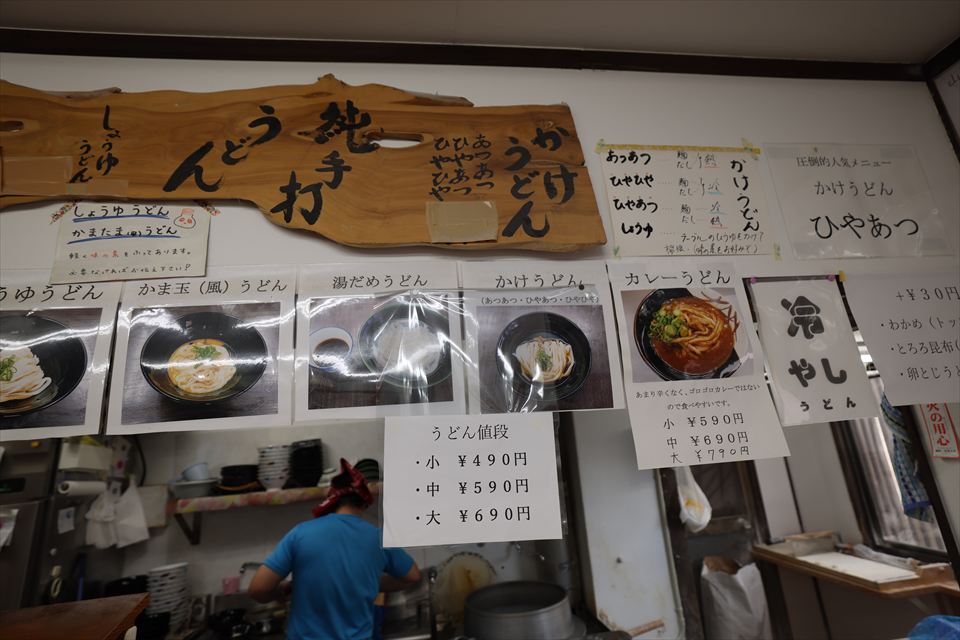 かけ
うどん
あつあつ
ひやあつ
ひやひや
純手打
うどん
しょうゆ
うどん
しょうゆうどん
かまたま(風)うどん
軽く味の素をふってあります。
必要なければお伝え下さい?
かけうどん
あつあつ 麺 熱
だし
ひやひや 麺 冷
だし
ひやあつ 麺 冷
だし 熱
しょうゆ
圧倒的人気メニュー
かけうどん
ひやあつ
うゆうどん
かま玉(風)うどん
湯だめうどん
かけうどん
(あつあつ・ひやあつ・ひやひや)
カレーうどん
あまり辛くなく、ゴロゴロカレーではない
ので食べやすいです。
小 ¥590円
中 ¥690円
大 ¥790円
冷やし
うどん
+¥30円
・わかめ(トッ
・とろろ昆布(
・卵とじうど
火の用心
うどん値段
・小 ¥490円
・中 ¥590円
・大 ¥690円